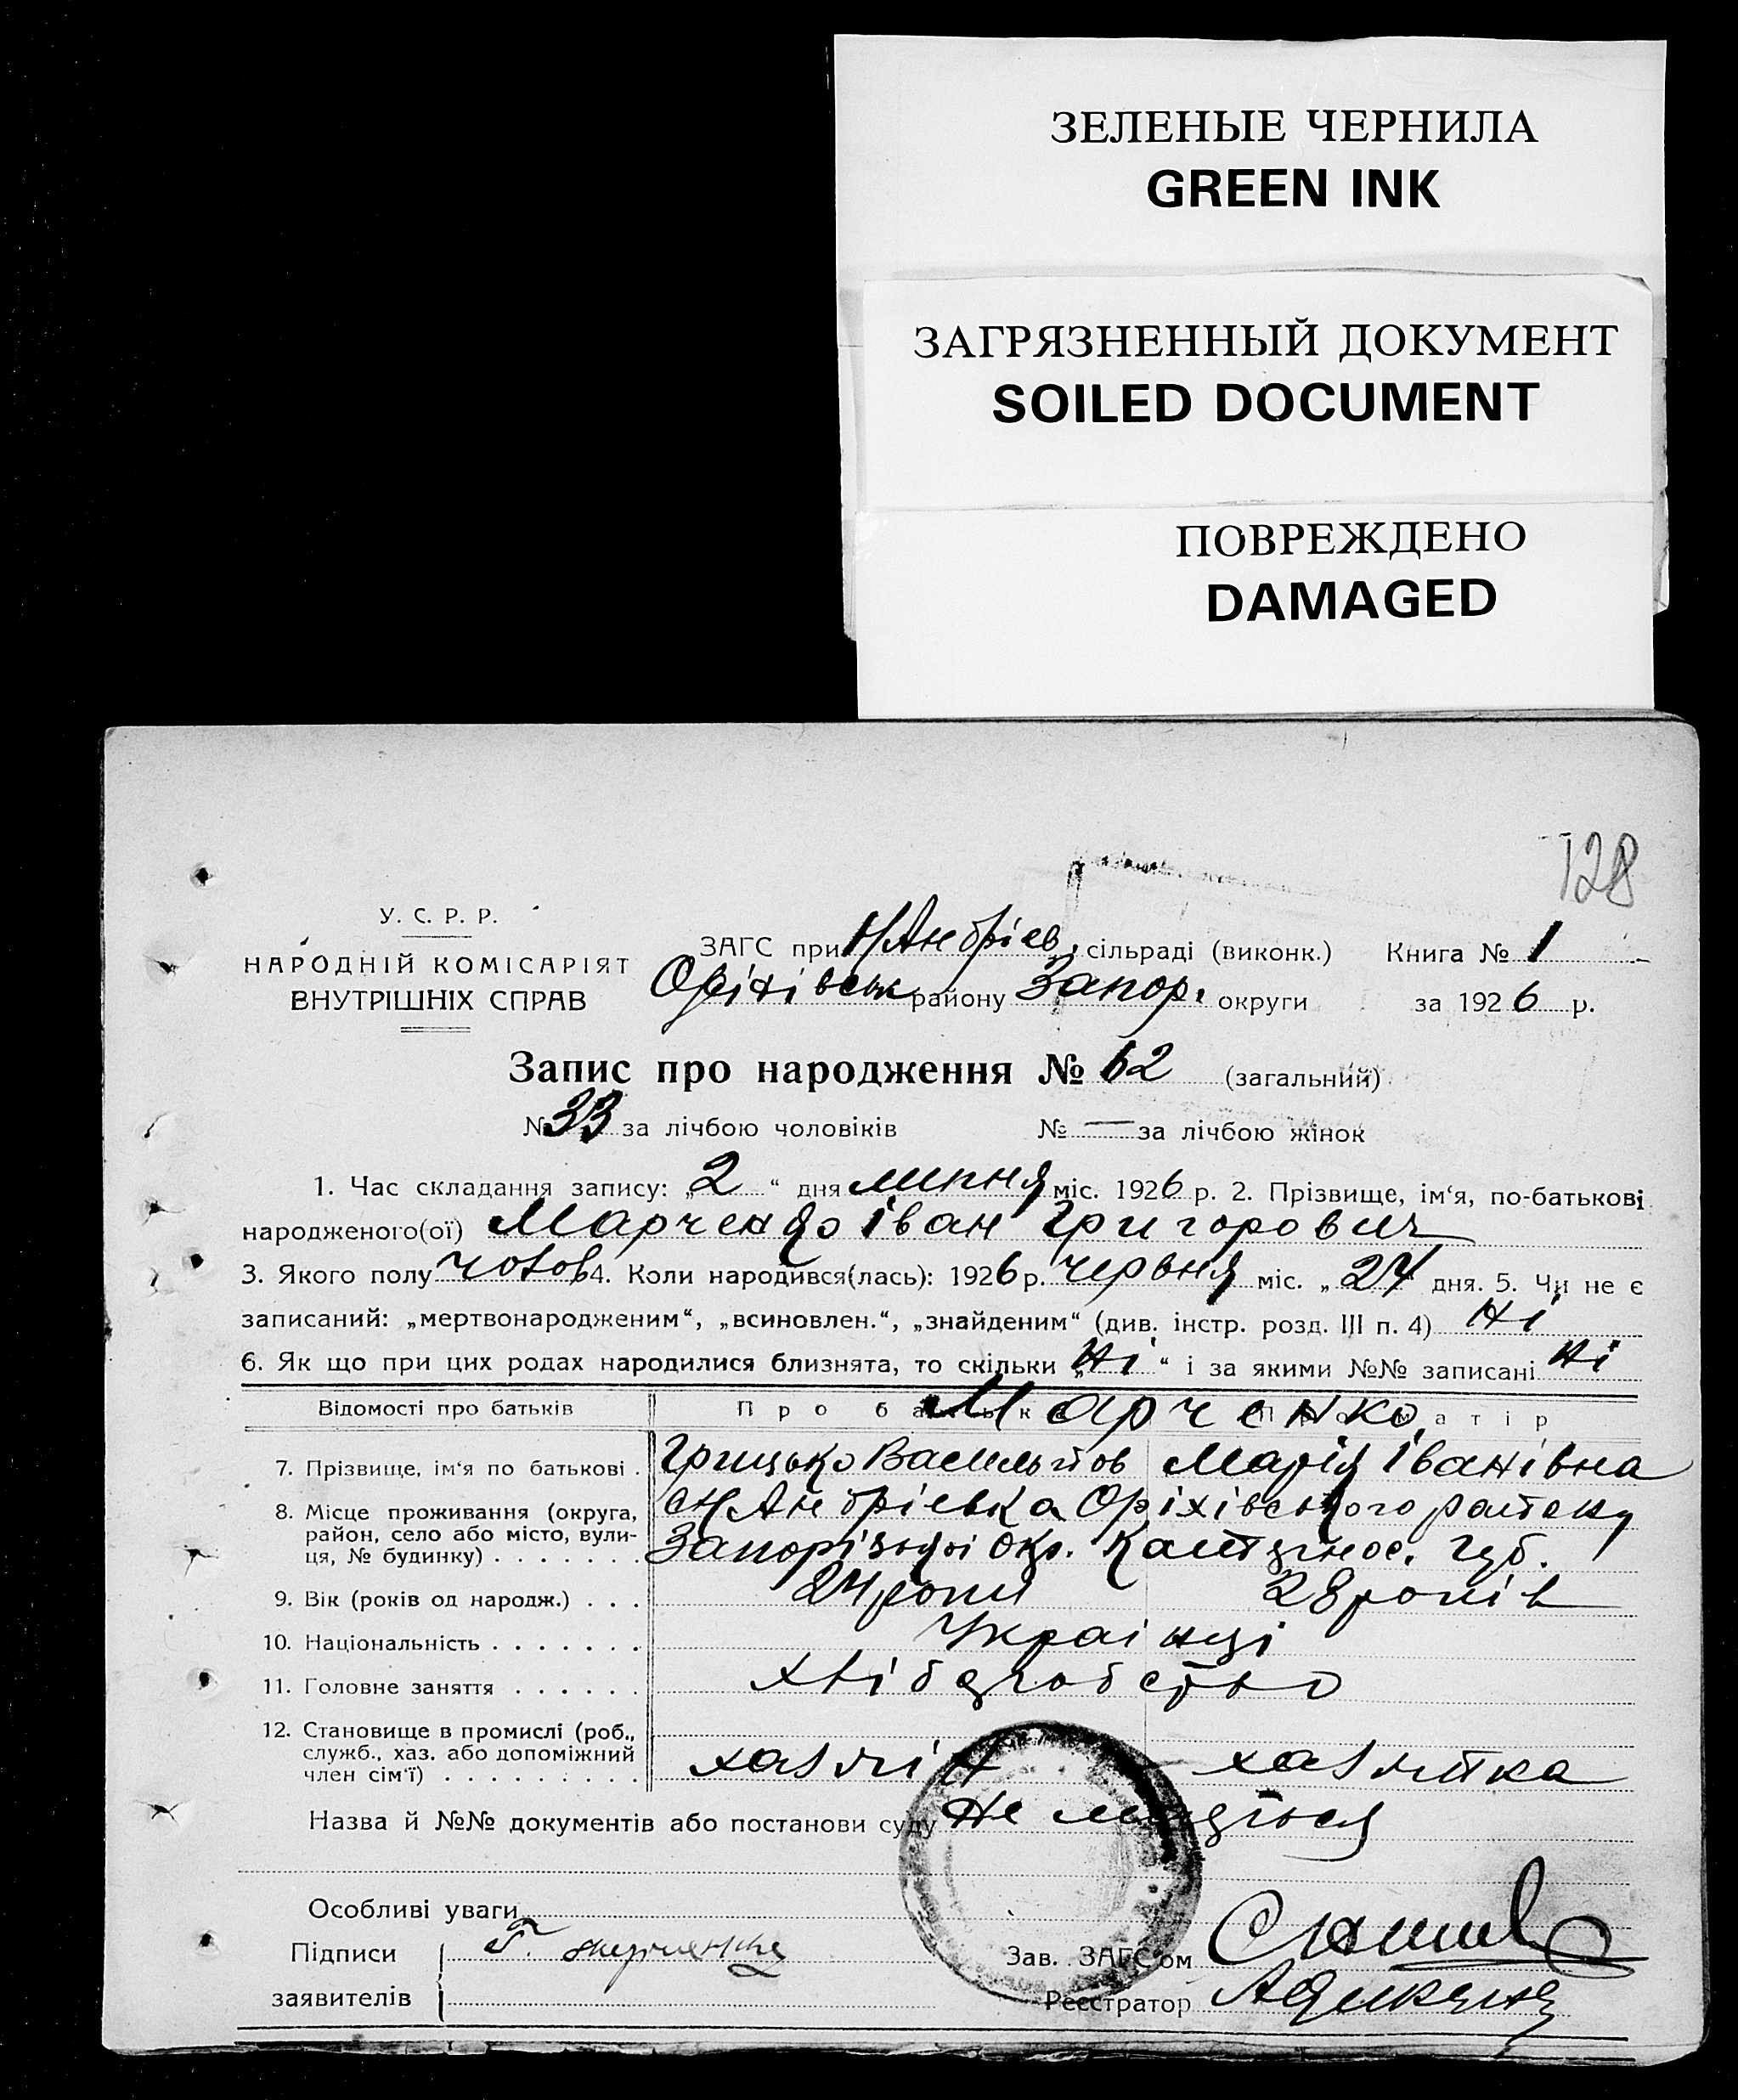 ЗЕЛЕНЫЕ ЧЕРНИЛА
GREEN INK
ЗАГРЯЗНЕННЫЙ ДОКУМЕНТ
SOILED DOCUMENT
ПОВРЕЖДЕНО
DAMAGED
128
У. С. Р. Р.
НАРОДНІЙ КОМІСАРІЯТ
ВНУТРІШНІХ СПРАВ
ЗАГС при Н/Андріев. сільраді (виконк.) Книга № 1
Оріхівськ району Запор. округи за 1926 р.
Запис про народження № 62 (загальний)
№ 33 за лічбою чоловіків № — за лічбою жінок
1. Час складання запису: „2“ дня липня міс. 1926 р. 2. Прізвище, ім‘я, по-батькові
народженого(ої) Марченко Іван Григорович
3. Якого полу чолов 4. Коли народився(лась): 1926 р. червня міс. „24 дня. 5. Чи не є
записаний: „мертвонародженим“, „всиновлен.“, „знайденим“ (див. інстр. розд. III п. 4) Ні
6. Як що при цих родах народилися близнята, то скільки „Ні“ і за якими №№ записані Ні
Відомості про батьків Про батька Про матір
Марченко
7. Прізвище, ім‘я по батькові . Грицько Васильйов Марія Іванівна
8. Місце проживання (округа, с Н/Андріевка Оріхівського району
район, село або місто, вули-
ця, № будинку) . . . . . . . Запорізької Окр. Катеринос. Губ.
9. Вік (років од народж.) . . . 24 роки 28 років
10. Національність . . . . . . . Українці
11. Головне заняття . . . . . . хліборобство
12. Становище в промислі (роб.,
служб., хаз. або допоміжний
член сім‘ї) . . . . . . . . . хазяін хазяйка
Назва й №№ документів або постанови суду Не маеться
Особливі уваги
Підписи Г. Марченко Зав. ЗАГС‘ом
заявителів Реєстратор